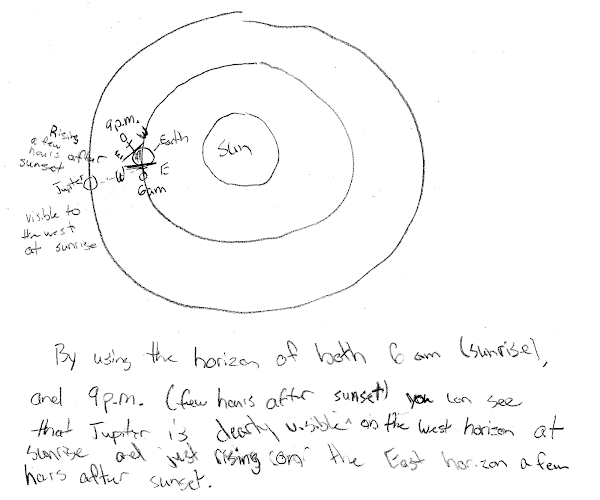 9 p.m.
Rising
a few
hours after
sunset
Earth
Sun
W
E
E
W
Jupiter
6am
visible to
the west
at sunrise
By using the horizon of both 6 am (sunrise),
and 9 p.m. (few hours after sunset) you can see
that Jupiter is clearly visible on the west horizon at
sunrise and just rising on the East horizon a few
hours after sunset.